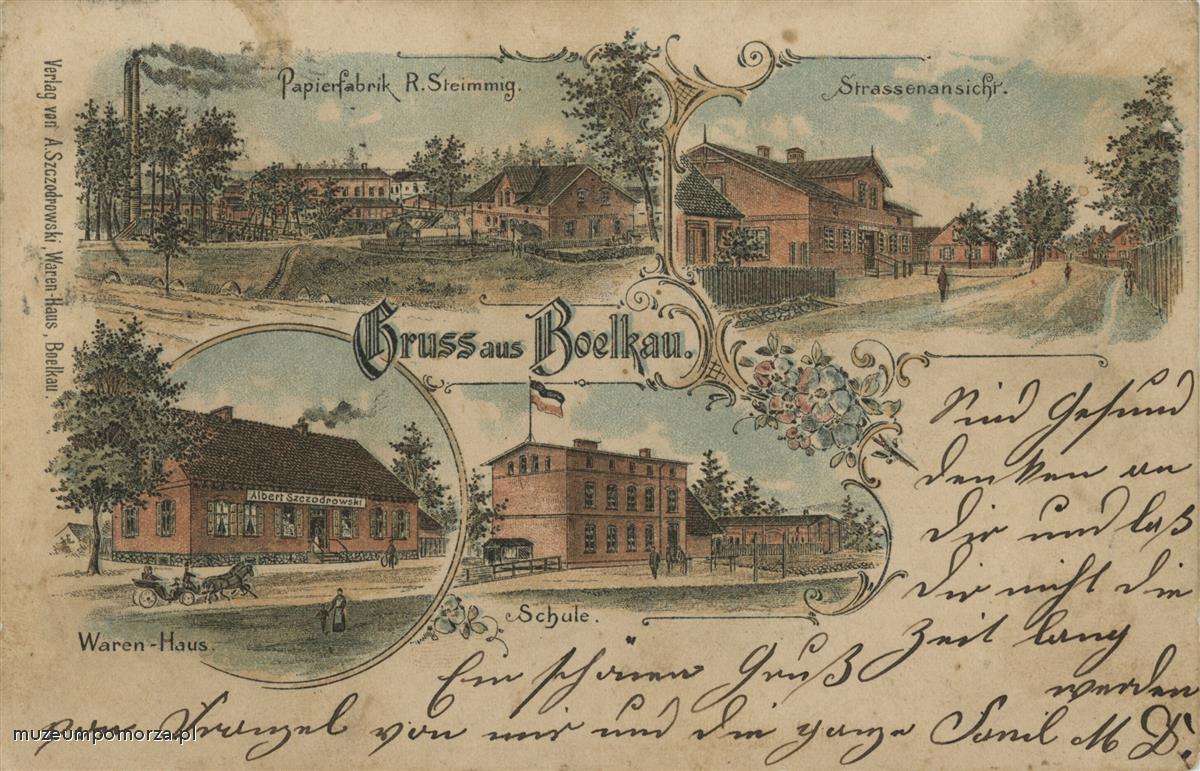 Papierfabrik R. Steimmig.
Strassenansicht.
Verlag von A. Szczodrowski Waren-Haus, Boelkau.
Gruss aus Boelkau.
Albert Szczodrowski
Waren-Haus.
Schule.
Sind Gesund
denken an
dir und laß
dir nicht die
Zeit lang
werden
Ein schöner Gruß
von mir und die ganze M D.
muzeumpomorza.pl